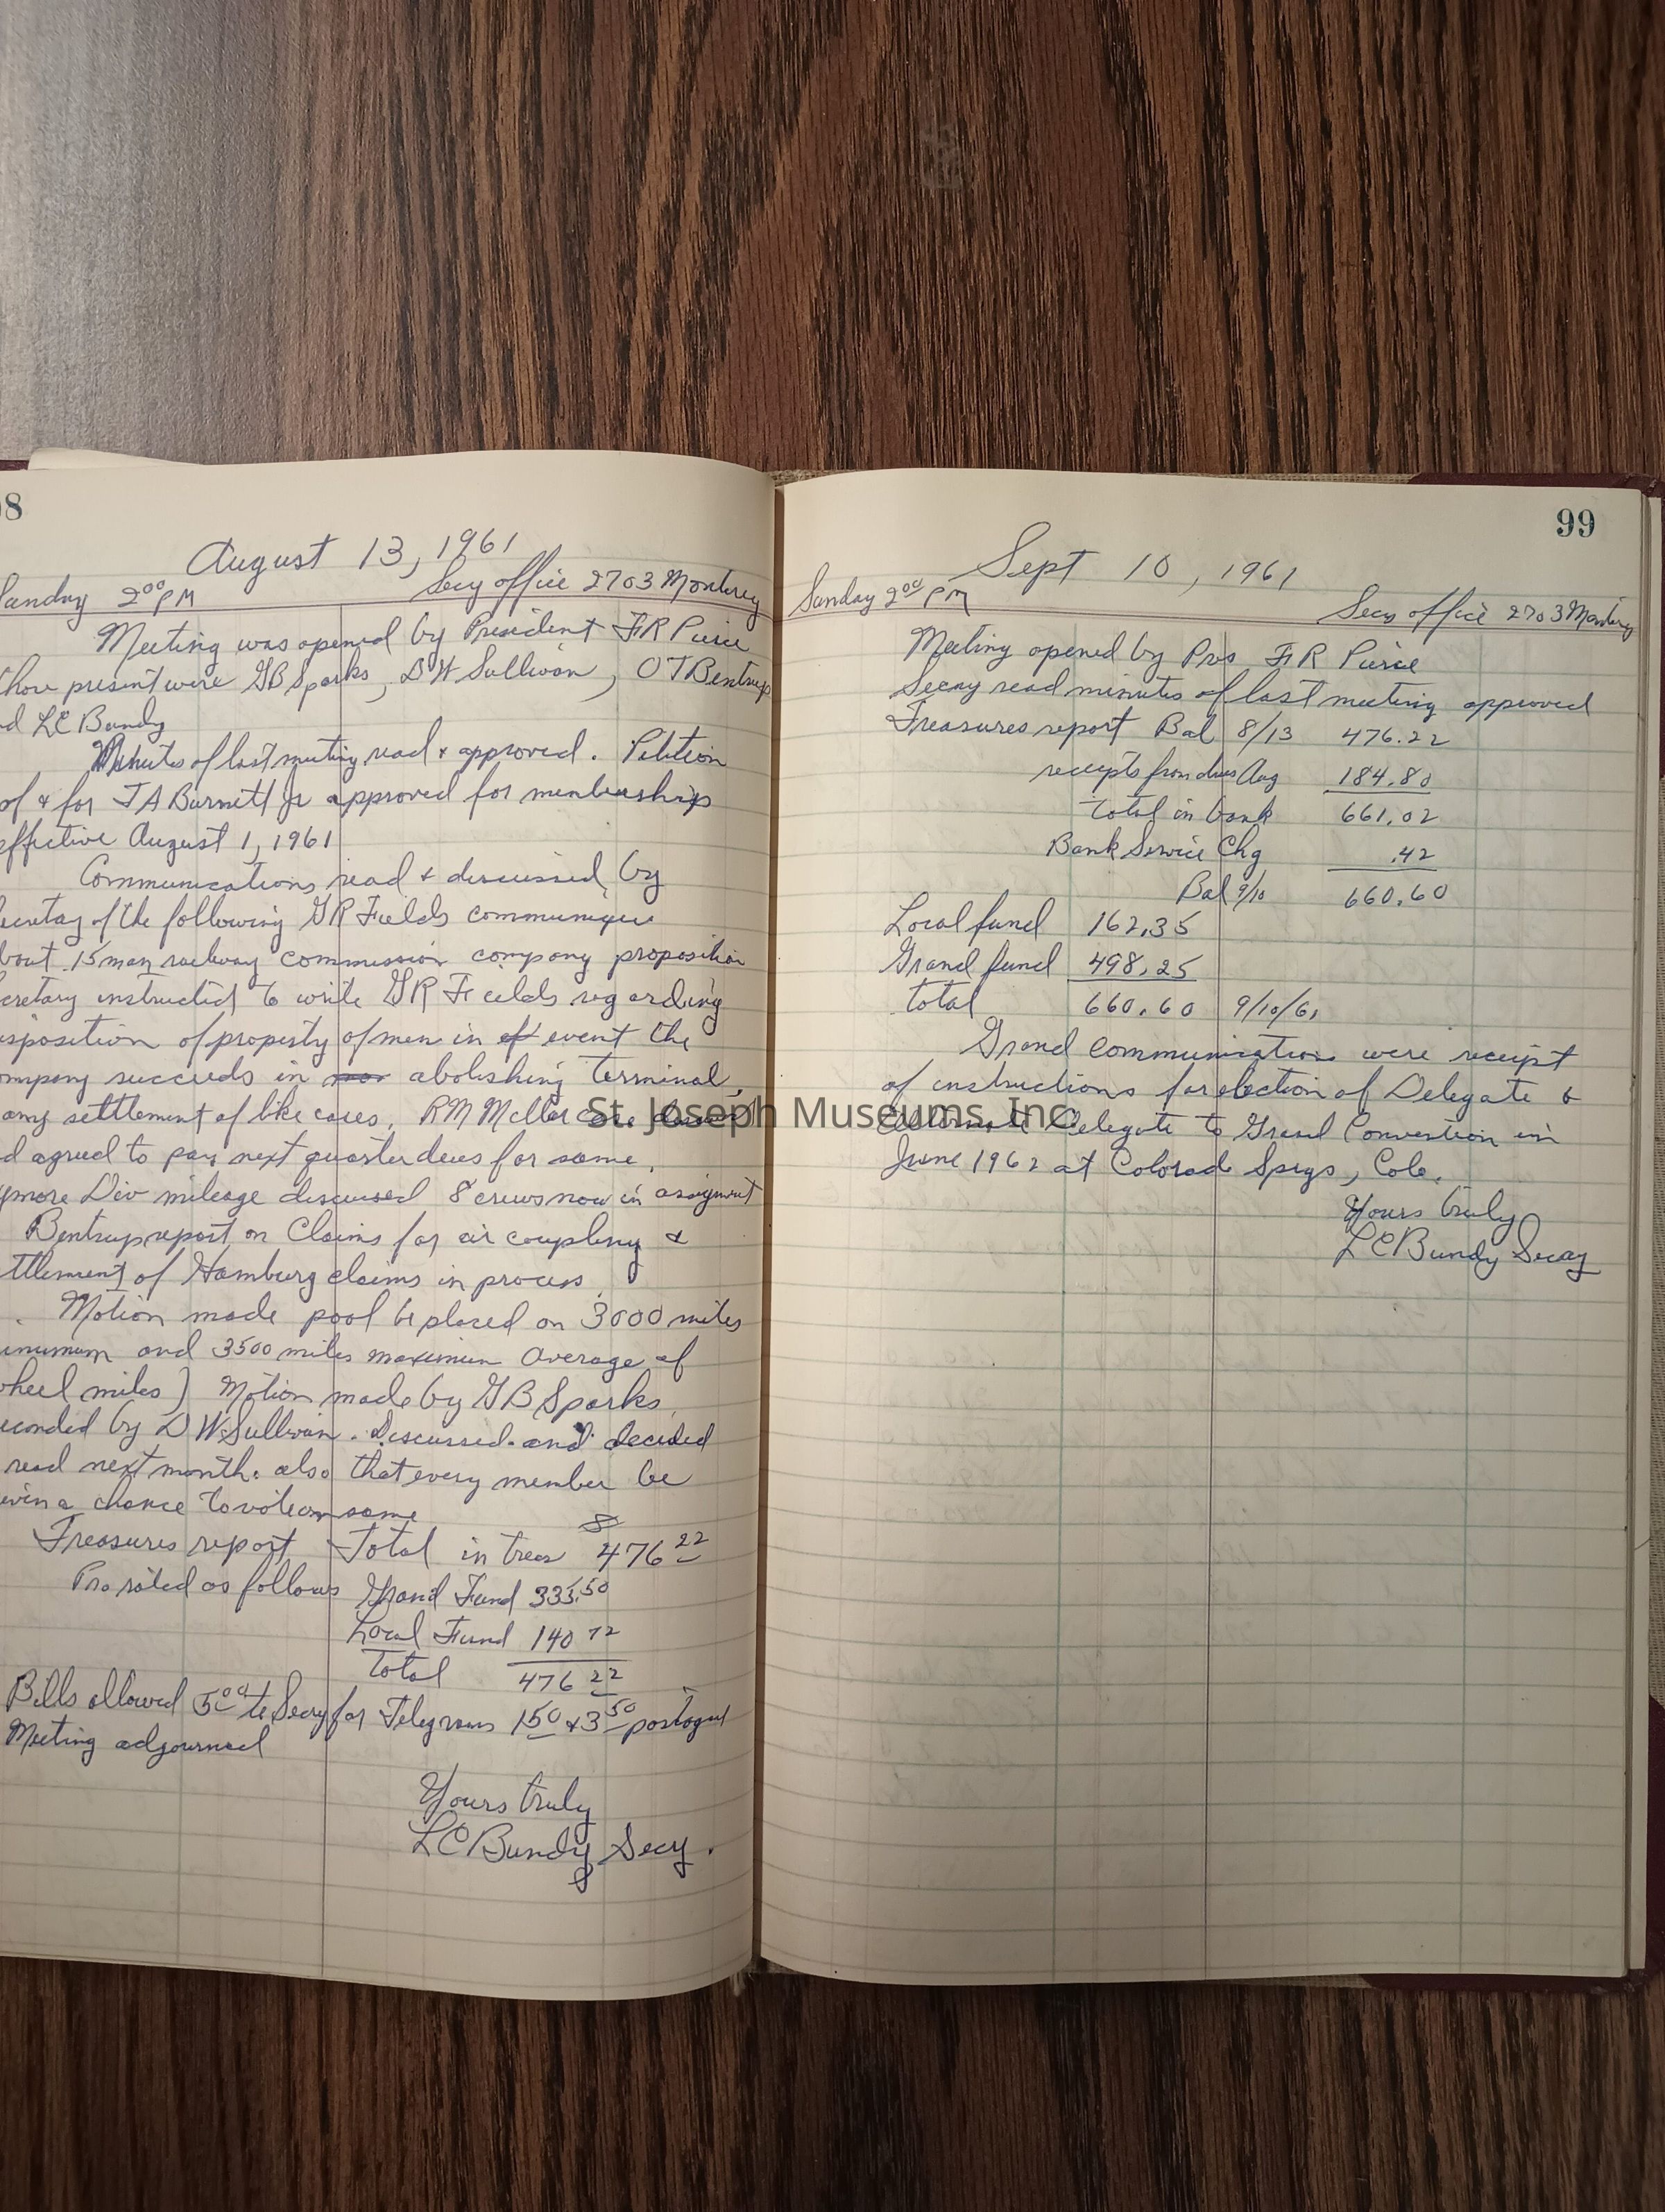 98
August 13, 1961
Sunday 2⁰⁰ PM Secy office 2703 Monterey
Meeting was opened by President FR Pierce
those present were GB Sparks, DW Sullivan, OT Bentrup
nd LC Bundy
Minutes of last meeting read & approved. Petition
of & for JA Burnett Jr approved for membership
effective August 1, 1961
Communications read & discussed by
ecretay of the following GR Fields communique
bout 15 man railway commission company proposition
ecretary instructed to write GR Fields regarding
isposition of property of men in event the
ompany succeeds in abolishing terminal,
any settlement of like cases. RM Meller case
d agreed to pay next quarter dues for same.
more Div mileage discussed 8 crews now in assignment
Bentrup report on Claims for air coupling &
ttlement of Hamburg claims in process.
Motion made pool be placed on 3000 miles
inimum and 3500 miles maximum average of
wheel miles) Motion made by GB Sparks,
econded by DW Sullivan. Discussed and decided
read next month. also that every member be
iven a chance to vote on same
Treasures report Total in treas 476 22
Pro rated as follows Grand Fund 335.50
Local Fund 140 72
Total 476 22
Bills allowed 5⁰⁰ to Secy for Telegrams 1 50 & 3 50 postage
Meeting adjourned
Yours truly
LC Bundy Secy.
99
Sept 10, 1961
Sunday 2⁰⁰ PM Secy office 2703 Monterey
Meeting opened by Pres FR Pierce
Secay read minutes of last meeting approved
Treasures report Bal 8/13 476.22
receipts from dues Aug 184.80
total in bank 661.02
Bank Service Chg .42
Bal 9/10 660.60
Local fund 162.35
Grand fund 498.25
total 660.60 9/10/61
Grand communications were receipt
of instructions for election of Delegate &
alternate Delegate to Grand Convention in
June 1962 at Colorado Spgs, Colo.
Yours truly
LC Bundy Secay
St. Joseph Museums, Inc.